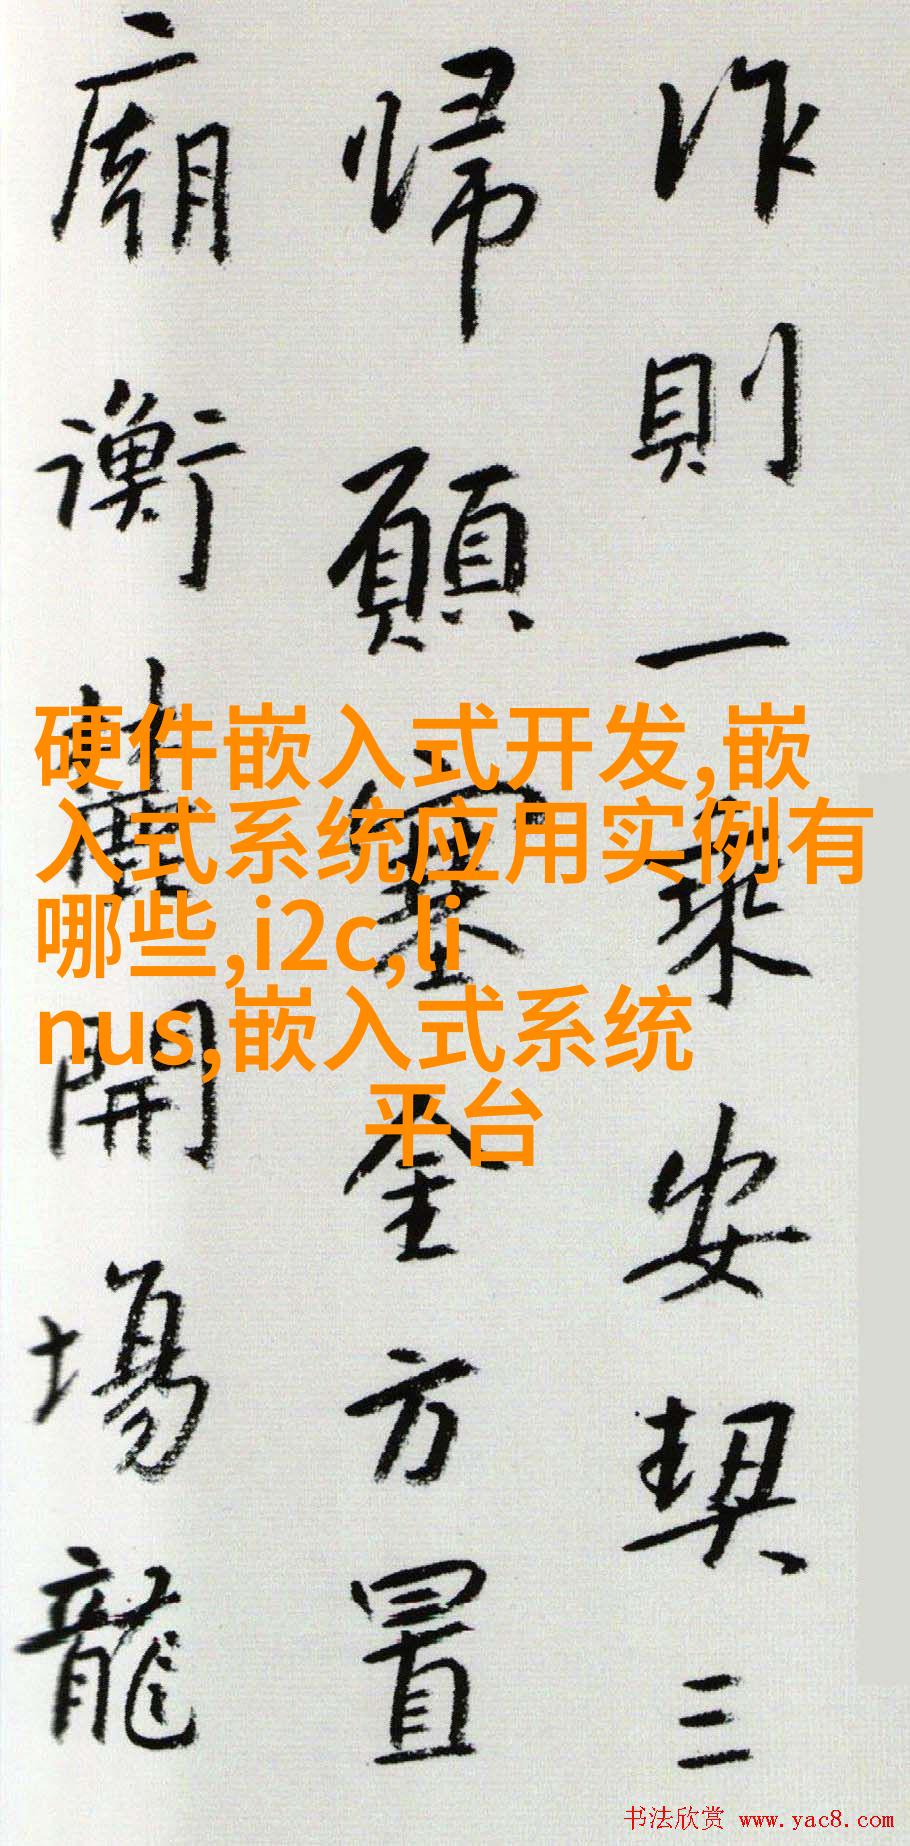 作則一安契三
帰願塞方置
廟衡開場龍
硬件嵌入式开发,嵌
入式系统应用实例有
哪些,i2c,li
nus,嵌入式系统
平台
书法欣赏 www.yac8.com